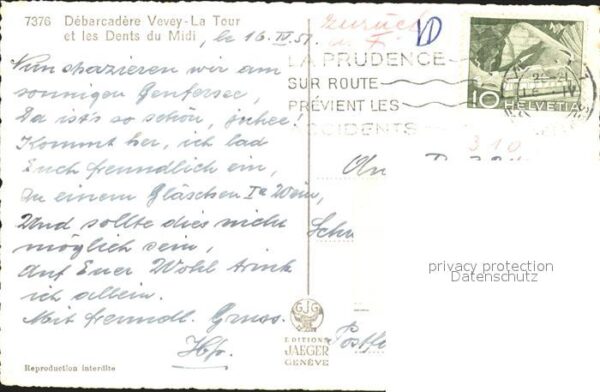 7376 Débarcadère Vevey-La Tour
et les Dents du Midi, le 16.IV.51.
Nun spazieren wir am
sonnigen Genfersee,
Da ist's so schön, juhee!
Kommt her, ich lad
Euch freundlich ein,
Zu einem Gläschen Ia Wein,
Und sollte dies nicht
möglich sein,
Auf Euer Wohl trink
ich allein.
Mit freundl. Gruss.
Reproduction interdite
zurück
LA PRUDENCE
SUR ROUTE
PRÉVIENT LES
ACCIDENTS
10 HELVETIA
310
An
Schw
Postf
EDITIONS
JAEGER
GENÈVE
privacy protection
Datenschutz